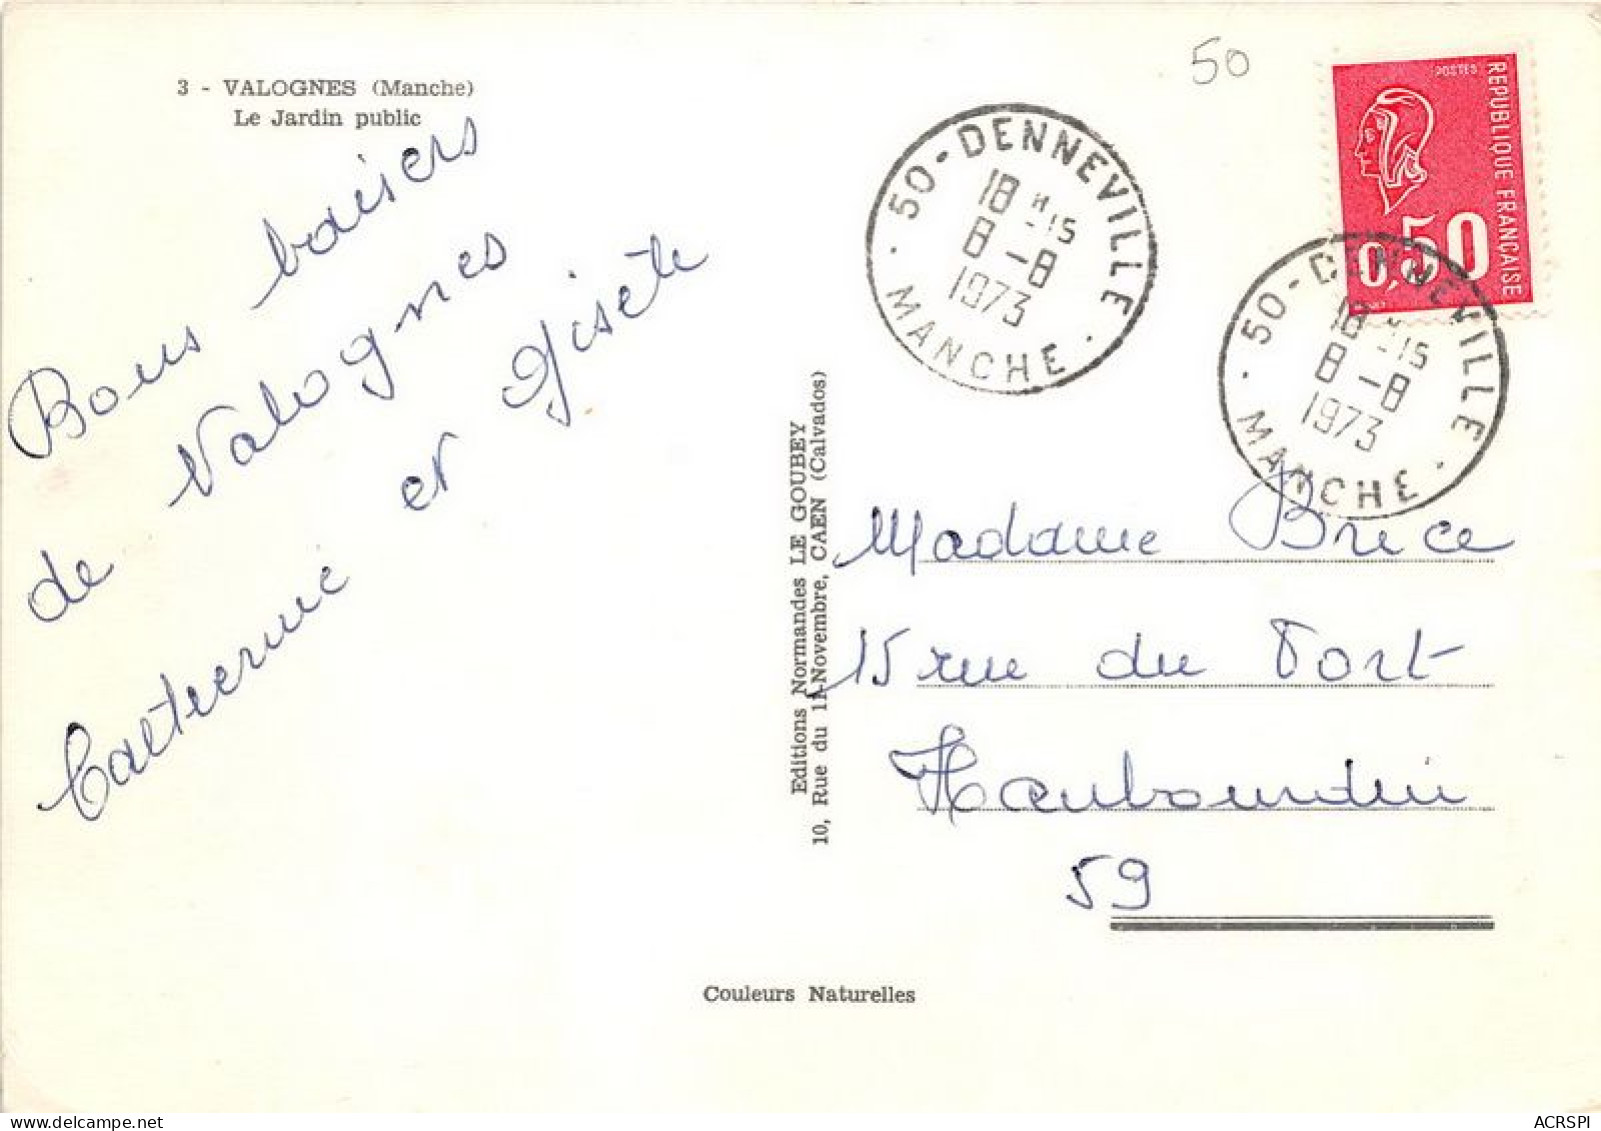 3 - VALOGNES (Manche)
Le Jardin public
Bons baisers
de Valognes
Catherine et Gisèle
50
POSTES
REPUBLIQUE FRANÇAISE
0,50
50 - DENNEVILLE
18 H 15
8 - 8
1973
MANCHE
50 - DENNEVILLE
18 H 15
8 - 8
1973
MANCHE
Editions Normandes LE GOUBEY
10, Rue du 11-Novembre, CAEN (Calvados)
Madame Brice
15 rue du Port
Haubourdin
59
Couleurs Naturelles
ACRSPI